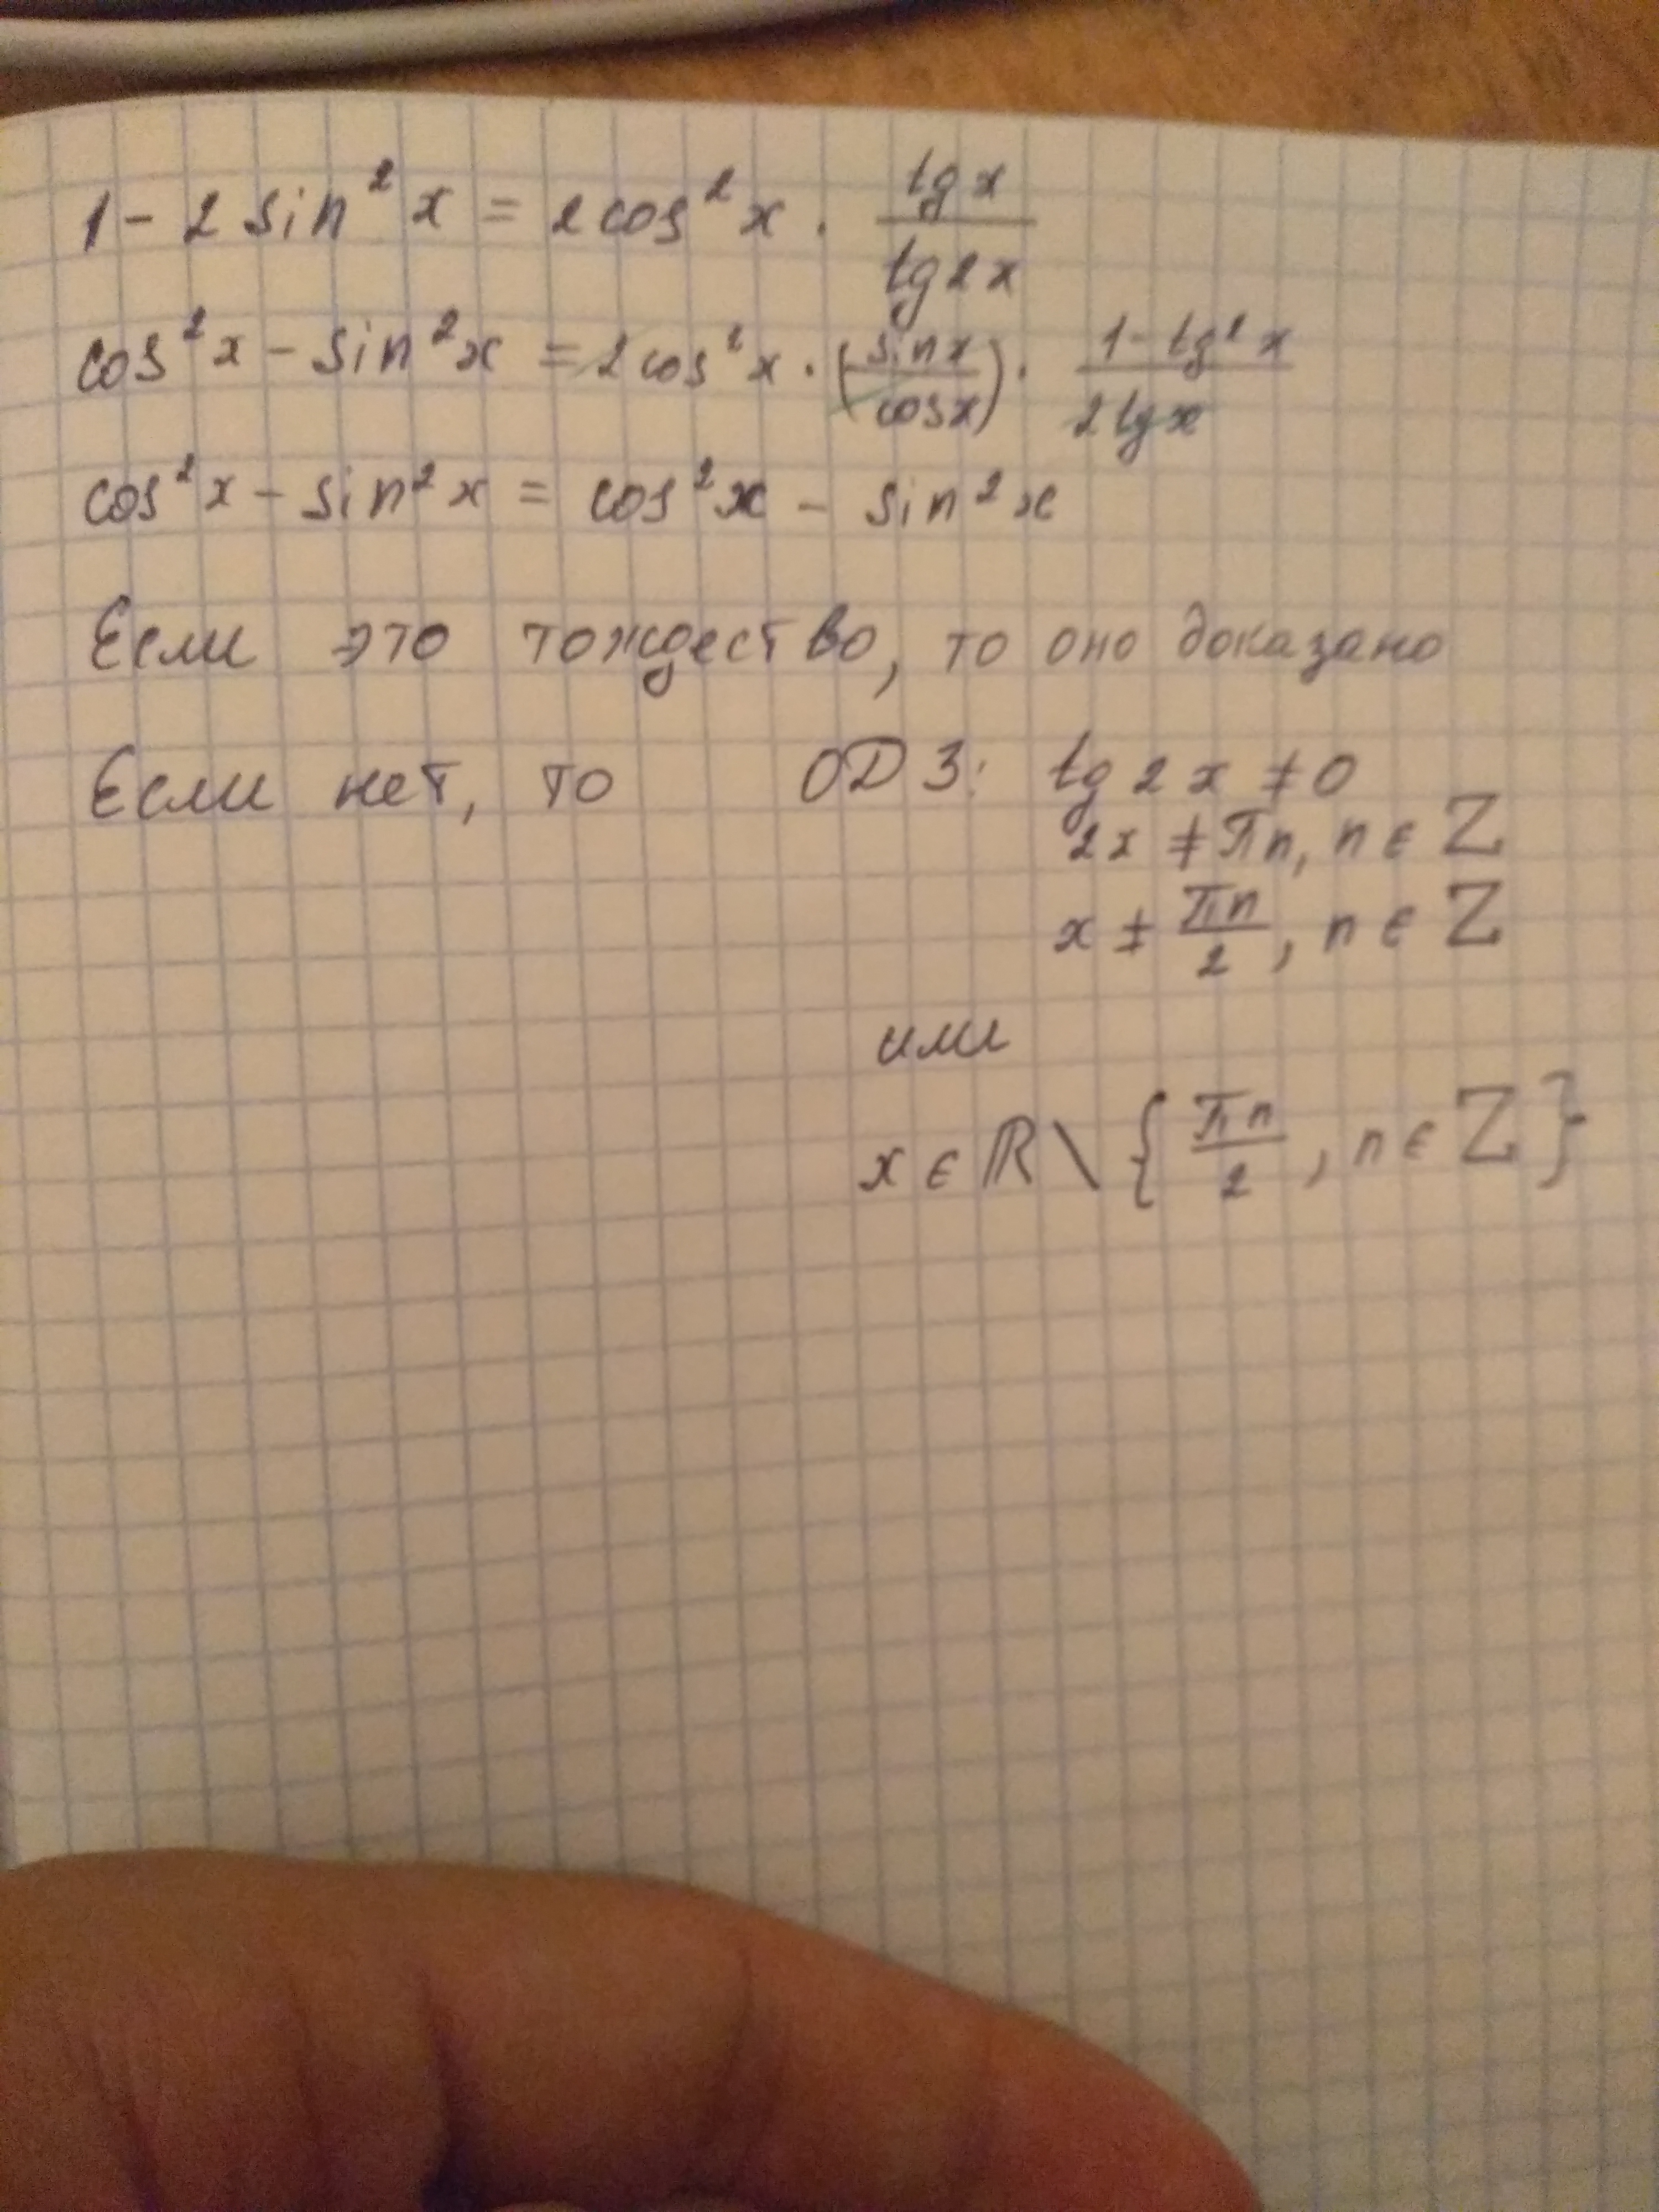 1 - 2 sin² x = 2 cos² x · tg x / tg 2x
cos² x - sin² x = 2 cos² x · (sin x / cos x) · (1 - tg² x) / (2 tg x)
cos² x - sin² x = cos² x - sin² x
Если это тождество, то оно доказано
Если нет, то ОДЗ: tg 2x ≠ 0
2x ≠ πn, n ∈ ℤ
x ≠ πn / 2, n ∈ ℤ
или
x ∈ ℝ \ { πn / 2, n ∈ ℤ }